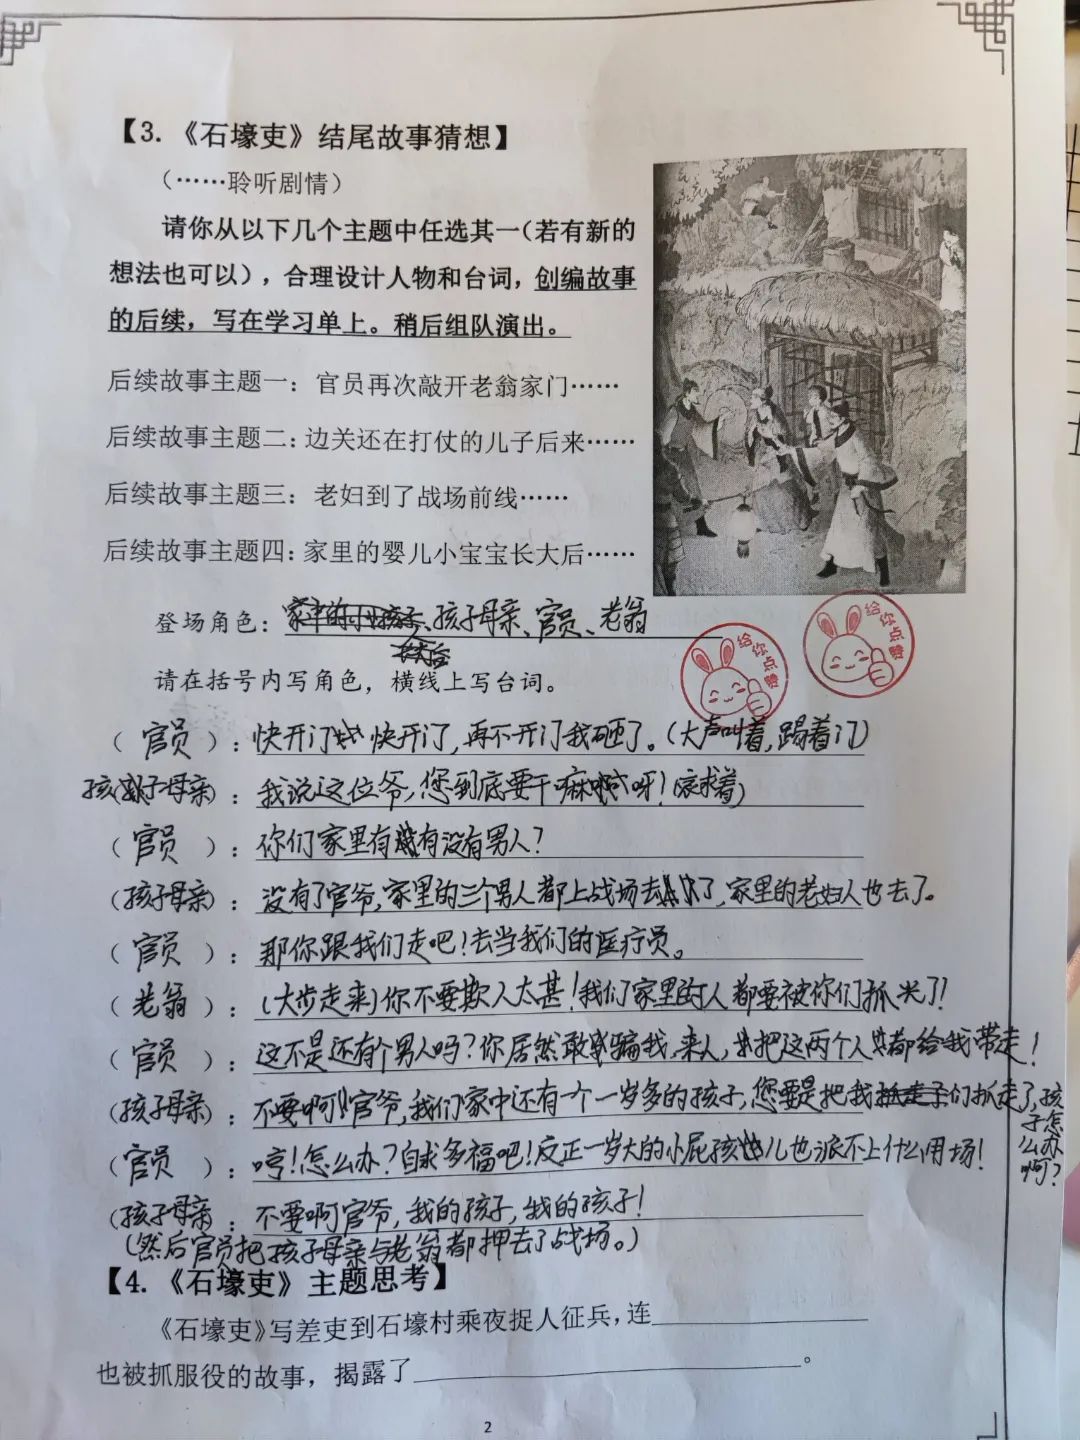 【3.《石壕吏》结尾故事猜想】
（……聆听剧情）
请你从以下几个主题中任选其一（若有新的
想法也可以），合理设计人物和台词，创编故事
的后续，写在学习单上。稍后组队演出。
后续故事主题一：官员再次敲开老翁家门……
后续故事主题二：边关还在打仗的儿子后来……
后续故事主题三：老妇到了战场前线……
后续故事主题四：家里的婴儿小宝宝长大后……
登场角色：孩子母亲、官员、老翁
给你点赞
给你点赞
请在括号内写角色，横线上写台词。
（官员）：快开门快开门，再不开门我砸了。（大声叫着，踢着门）
（孩子母亲）：我说这位爷，您到底要干嘛呀！（哀求着）
（官员）：你们家里有没有男人？
（孩子母亲）：没有了官爷，家里的三个男人都上战场去了，家里的老妇人也去了。
（官员）：那你跟我们走吧！去当我们的医疗员。
（老翁）：（大步走来）你不要欺人太甚！我们家里的人都要被你们抓光了！
（官员）：这不是还有个男人吗？你居然敢骗我，来人，把这两个人都给我带走！
（孩子母亲）：不要啊！官爷，我们家中还有一个一岁多的孩子，您要是把我们抓走了，孩子怎么办啊？
（官员）：哼！怎么办？自求多福吧！反正一岁大的小屁孩儿也派不上什么用场！
（孩子母亲）：不要啊官爷，我的孩子，我的孩子！
（然后官员把孩子母亲与老翁都押去了战场。）
【4.《石壕吏》主题思考】
《石壕吏》写差吏到石壕村乘夜捉人征兵，连
也被抓服役的故事，揭露了。
2